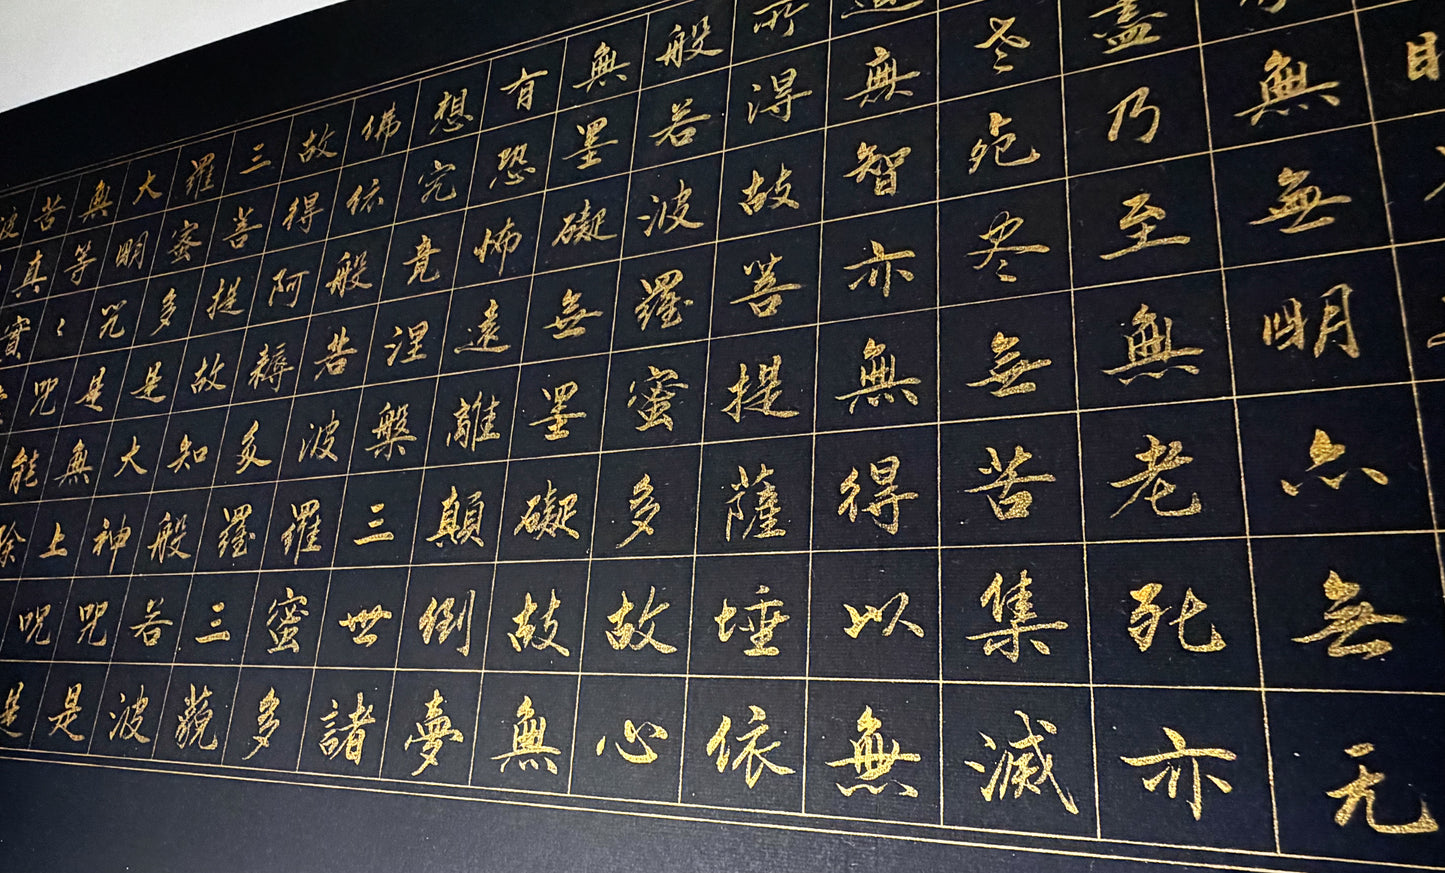 無無明亦無无
盡乃至無老死亦
老死尽無苦集滅
無智亦無得以無
所得故菩提薩埵依
般若波羅蜜多故心
無罣礙無罣礙故無
有恐怖遠離顛倒夢
想究竟涅槃三世諸
佛依般若波羅蜜多
故得阿耨多羅三藐
三菩提故知般若波
羅蜜多是大神咒是
大明咒是無上咒是
無等〻咒能除
苦真實